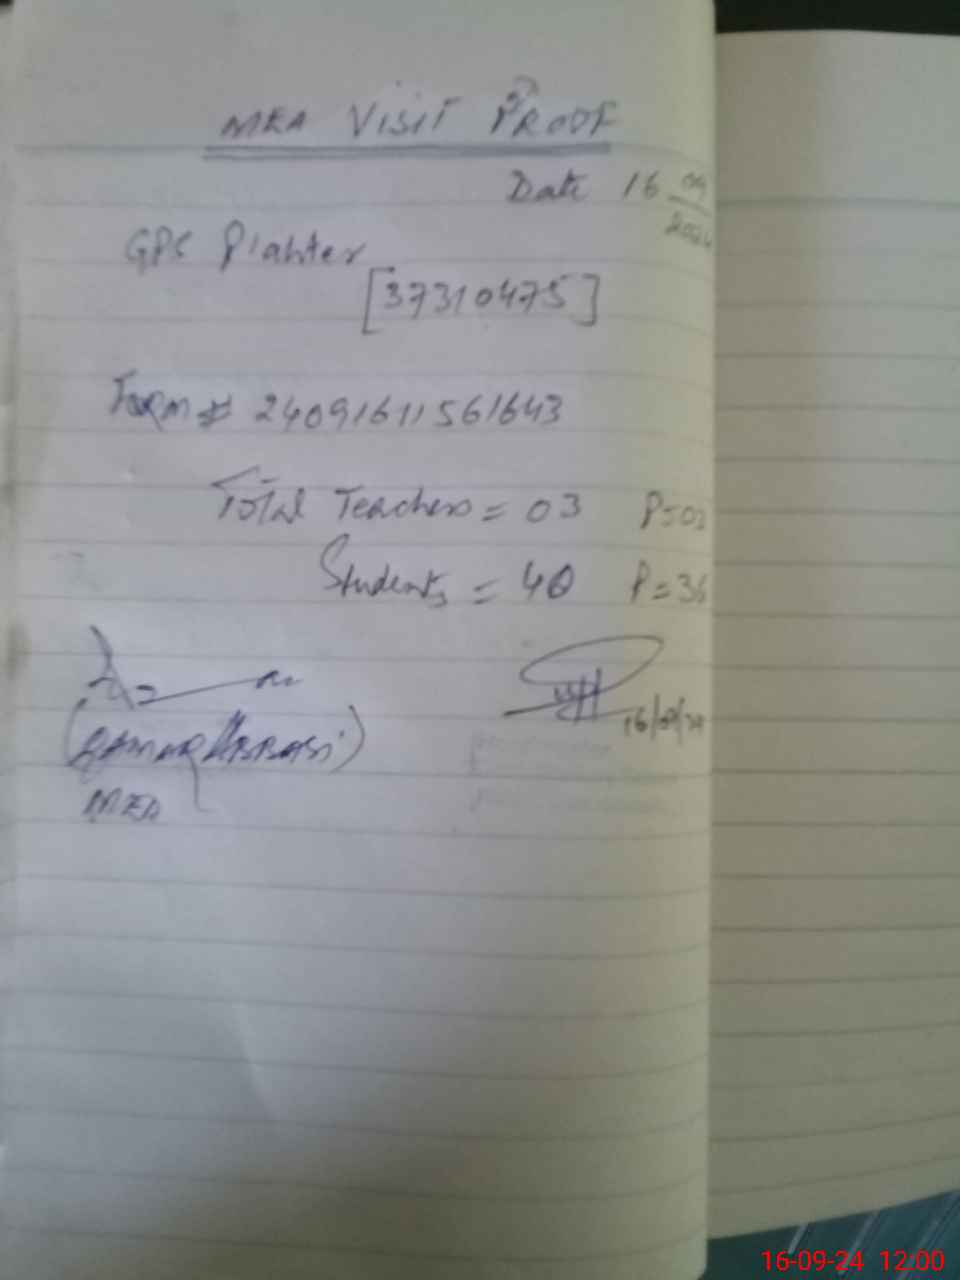 MEA VISIT PROOF
Date 16 09
2024
GPS Plahter
[37310475]
Form # 24091611561643
Total Teachers = 03 P=03
Students = 40 P=36
(QAMAR ABBASI)
MEA
16/09/24
16-09-24 12:00